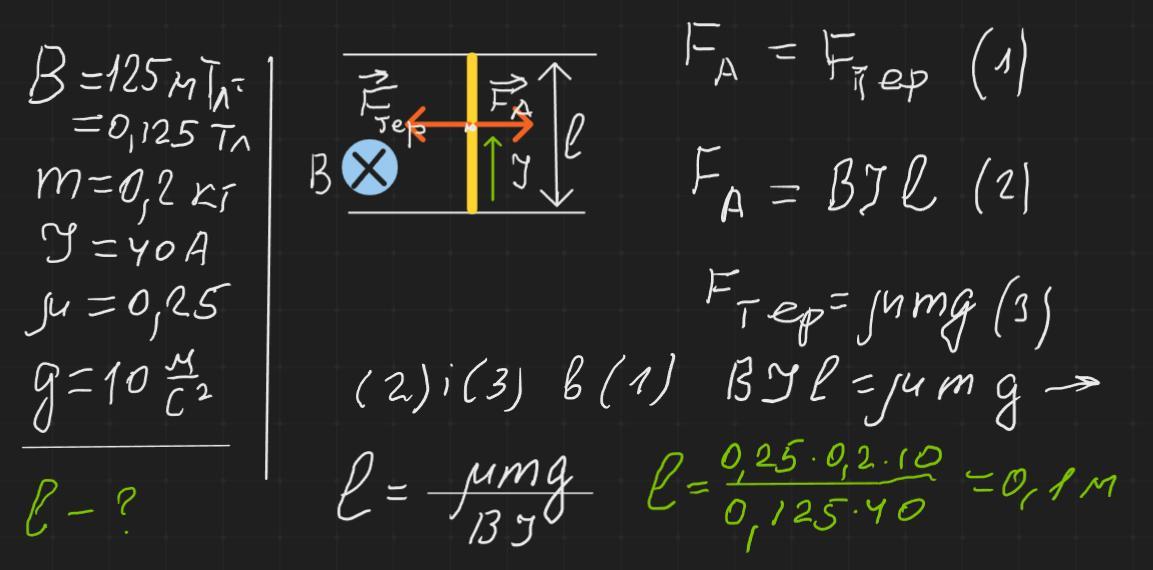 B = 125 мТл =
= 0,125 Тл
m = 0,2 кг
I = 40 A
μ = 0,25
g = 10 м/с²
l - ?
F⃗тер F⃗A
B
I
l
FA = Fтер (1)
FA = BIl (2)
Fтер = μmg (3)
(2) і (3) в (1) BIl = μmg →
l = μmg / BI
l = 0,25·0,2·10 / 0,125·40 = 0,1 м